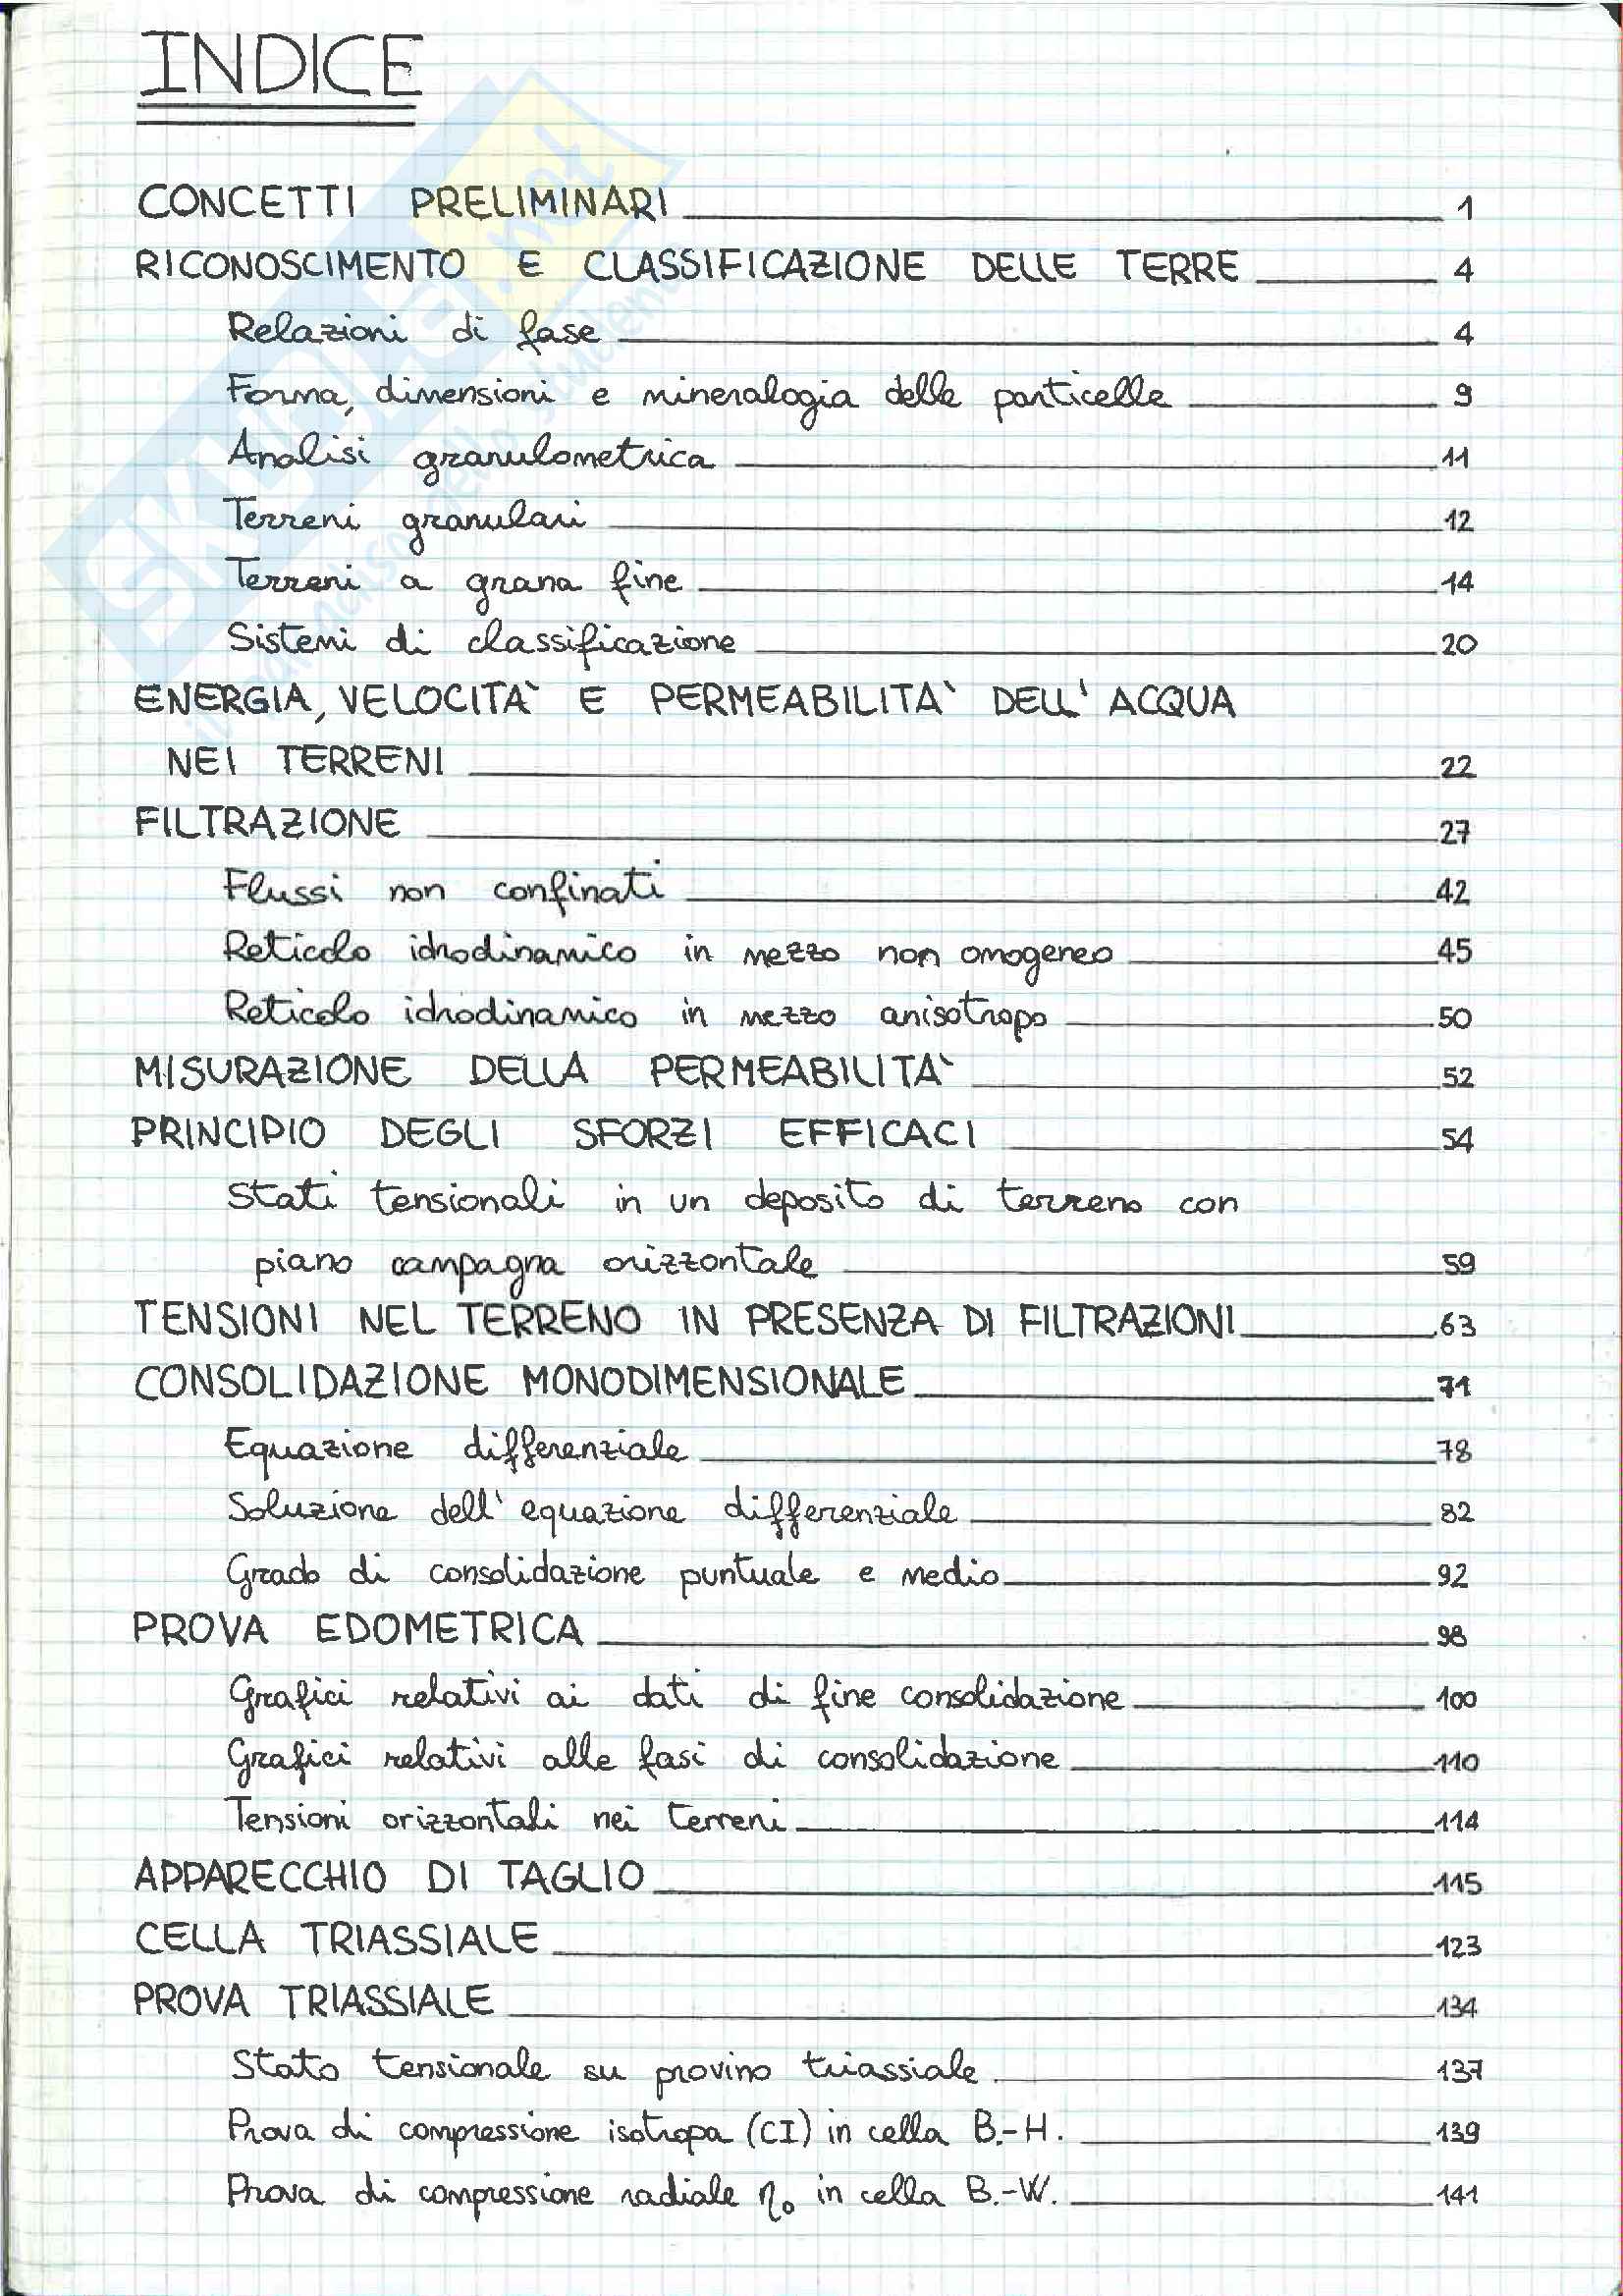 INDICE
CONCETTI PRELIMINARI 1
RICONOSCIMENTO E CLASSIFICAZIONE DELLE TERRE 4
Relazioni di fase 4
Forma, dimensioni e mineralogia delle particelle 9
Analisi granulometrica 11
Terreni granulari 12
Terreni a grana fine 14
Sistemi di classificazione 20
ENERGIA, VELOCITA` E PERMEABILITA` DELL'ACQUA
NEI TERRENI 22
FILTRAZIONE 27
Flussi non confinati 42
Reticolo idrodinamico in mezzo non omogeneo 45
Reticolo idrodinamico in mezzo anisotropo 50
MISURAZIONE DELLA PERMEABILITA` 52
PRINCIPIO DEGLI SFORZI EFFICACI 54
Stati tensionali in un deposito di terreno con
piano campagna orizzontale 59
TENSIONI NEL TERRENO IN PRESENZA DI FILTRAZIONI 63
CONSOLIDAZIONE MONODIMENSIONALE 71
Equazione differenziale 78
Soluzione dell'equazione differenziale 82
Grado di consolidazione puntuale e medio 92
PROVA EDOMETRICA 98
Grafici relativi ai dati di fine consolidazione 100
Grafici relativi alle fasi di consolidazione 110
Tensioni orizzontali nei terreni 114
APPARECCHIO DI TAGLIO 115
CELLA TRIASSIALE 123
PROVA TRIASSIALE 134
Stato tensionale su provino triassiale 137
Prova di compressione isotropa (CI) in cella B.-H. 139
Prova di compressione radiale η₀ in cella B.-W. 141